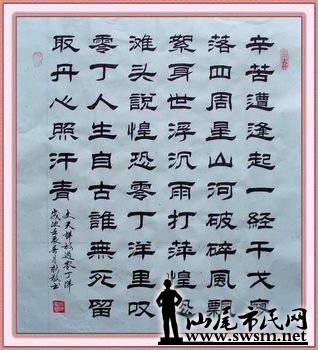 辛苦遭逢起一経干戈寥
落四周星山河破碎風飄
絮身世浮沉雨打萍惶恐
滩头說惶恐零丁洋里叹
零丁人生自古誰無死留
取丹心照汗青
文天祥 過零丁洋
歲次壬辰
汕尾市民网
www.swsm.net